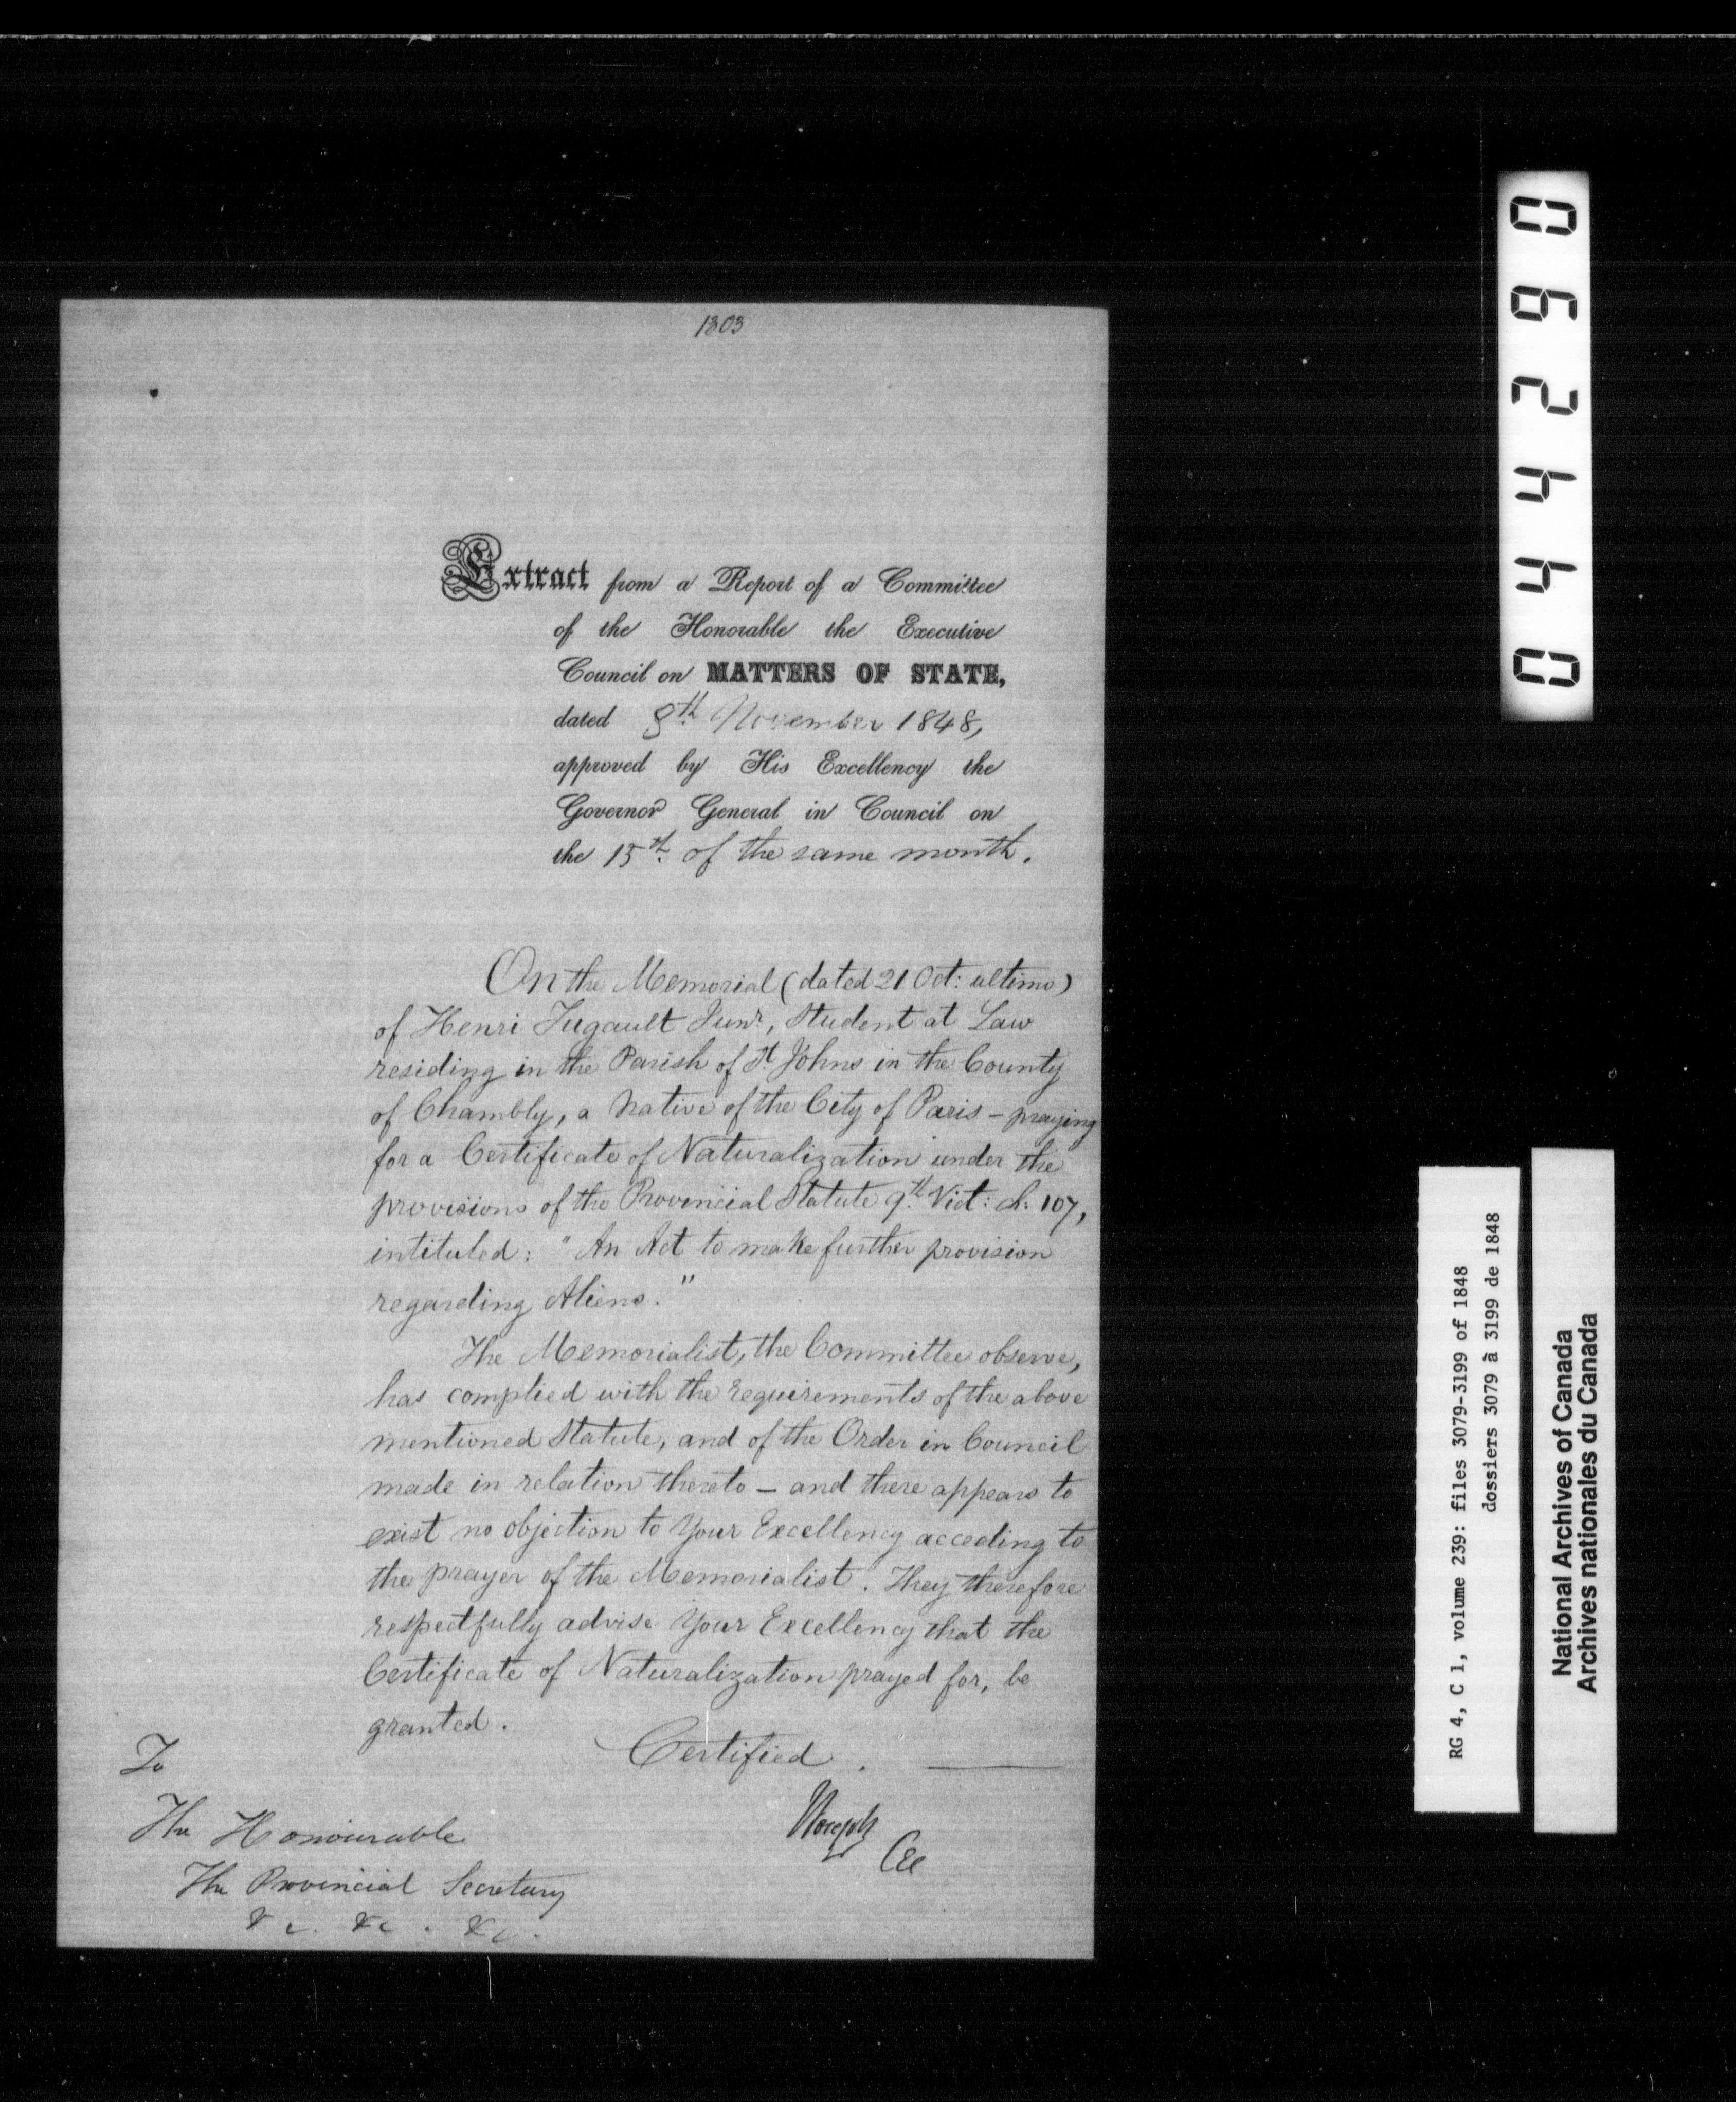 1303
Extract from a Report of a Committee
of the Honorable the Executive
Council on MATTERS OF STATE,
dated 8th November 1848,
approved by His Excellency the
Governor General in Council on
the 15th of the same month.
On the Memorial (dated 21 Oct: ultimo)
of Henri Jugault Junr, Student at Law
residing in the Parish of St Johns in the County
of Chambly, a Native of the City of Paris – praying
for a Certificate of Naturalization under the
provisions of the Provincial Statute 9th Vict: ch: 107,
intituled: "An Act to make further provision
regarding Aliens."
The Memorialist, the Committee observe,
has complied with the requirements of the above
mentioned Statute, and of the Order in Council
made in relation thereto – and there appears to
exist no objection to Your Excellency acceding to
the prayer of the Memorialist. They therefore
respectfully advise Your Excellency that the
Certificate of Naturalization prayed for, be
granted.
Certified.
To
The Honourable
The Provincial Secretary
&c. &c. &c.
Joseph
CEC
044290
RG 4, C 1, volume 239: files 3079-3199 of 1848
dossiers 3079 à 3199 de 1848
National Archives of Canada
Archives nationales du Canada